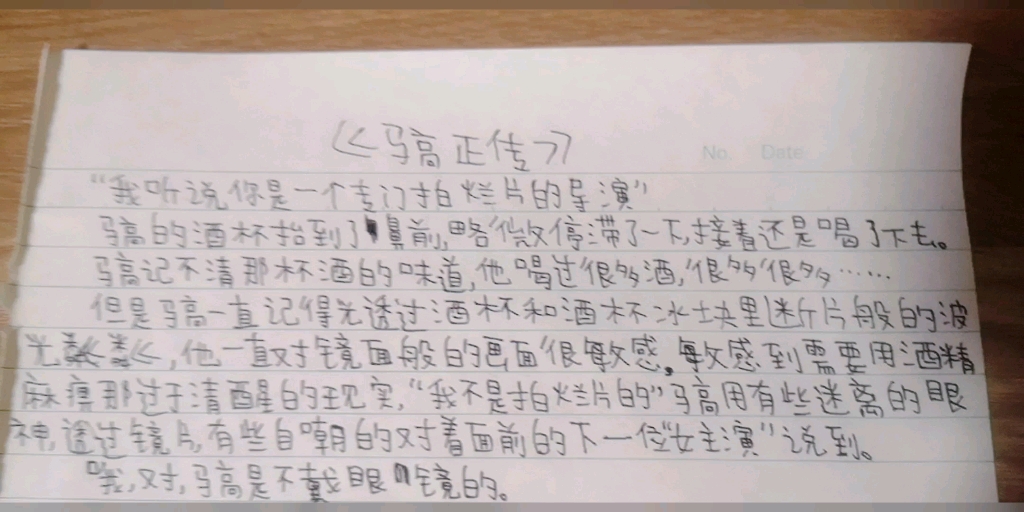 《马高正传》
No. Date
“我听说你是一个专门拍烂片的导演”
马高的酒杯抬到了鼻前,略微停滞了一下,接着还是喝了下去。
马高记不清那杯酒的味道,他喝过很多酒,很多很多……
但是马高一直记得光透过酒杯和酒杯冰块里迷斤片般的波
光粼粼,他一直对镜面般的画面很敏感,敏感到需要用酒精
麻痹那过于清醒的现实,“我不是拍烂片的”马高用有些迷离的眼
神,透过镜片,有些自嘲的对着面前的下一位“女主演”说到。
哦,对,马高是不戴眼镜的。